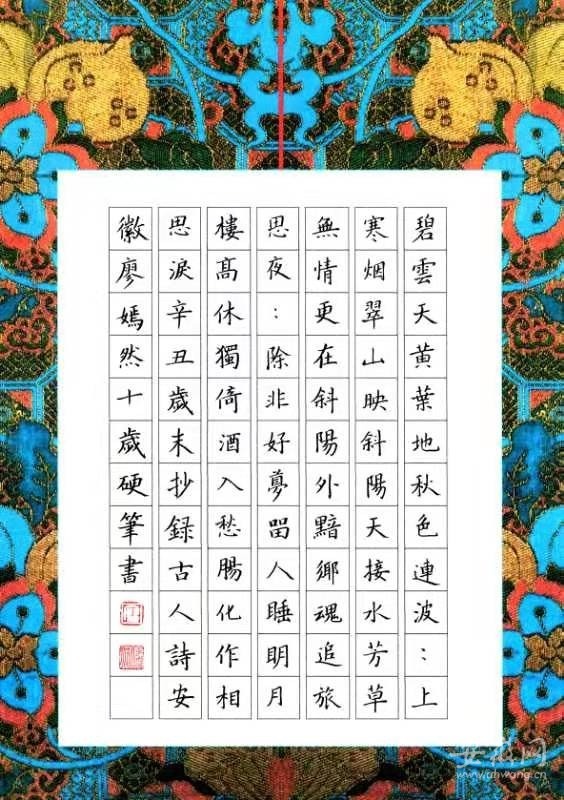 碧雲天黄葉地秋色連波：上
寒烟翠山映斜陽天接水芳草
無情更在斜陽外黯鄉魂追旅
思夜：除非好夢留人睡明月
樓高休獨倚酒入愁腸化作相
思淚辛丑歲末抄録古人詩安
徽廖嫣然十歲硬筆書
安徽网
www.ahwang.cn